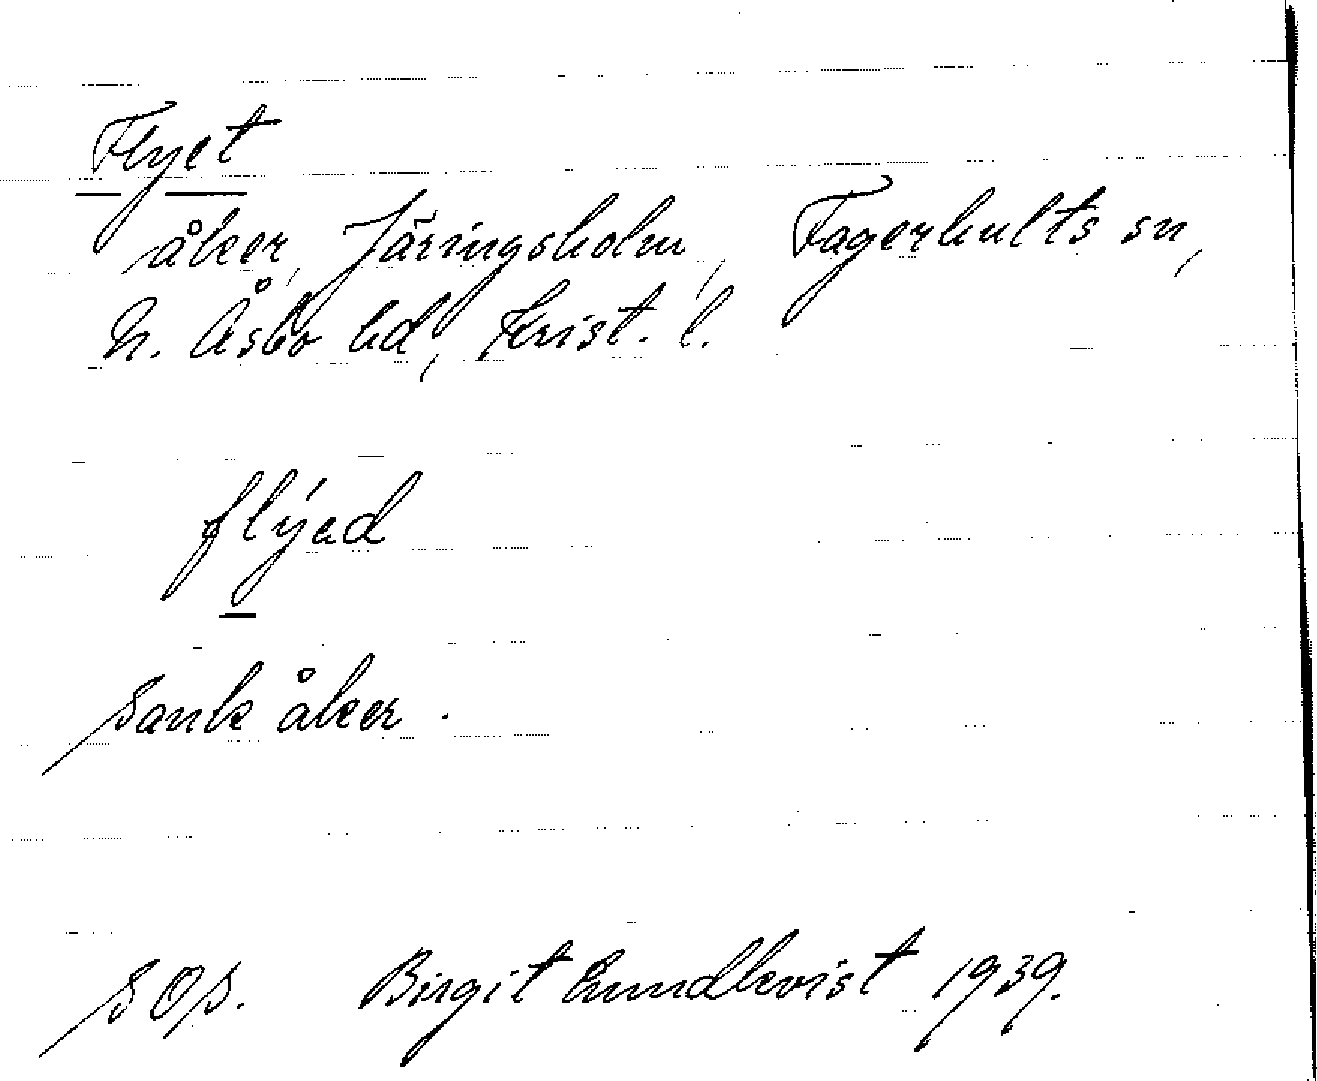 Flyet
åker, Järingsholm, Fagerhults sn,
N. Åsbo hd, Krist. l.
flýed
Sank åker.
SOS. Birgit Lundkvist 1939.